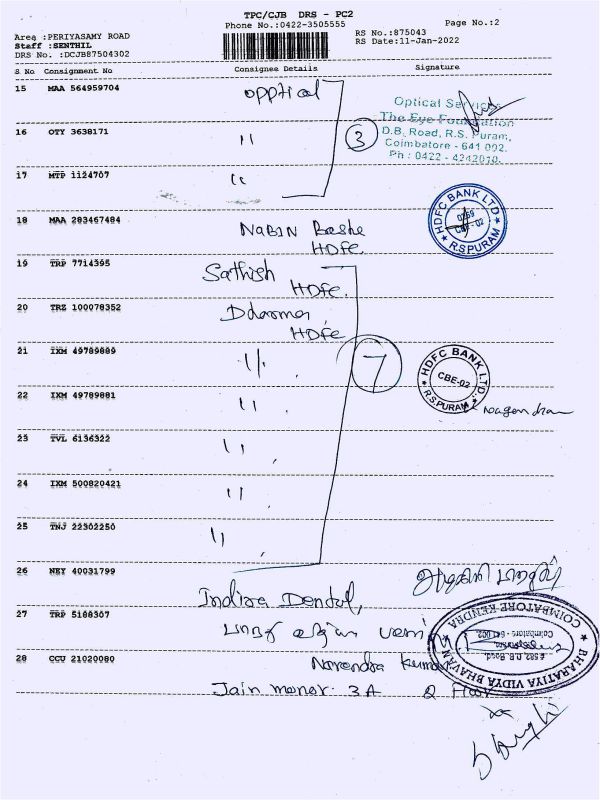 TPC/CJB DRS - PC2
Phone No.:0422-3505555
Page No.:2
Area :PERIYASAMY ROAD
Staff :SENTHIL
DRS No. :DCJB87504302
RS No.:875043
RS Date:11-Jan-2022
S No Consignment No Consignee Details Signature
15 MAA 564959704 opptical
Optical Services
The Eye Foundation
D.B. Road, R.S. Puram,
Coimbatore - 641 002.
Ph : 0422 - 4242010.
16 OTY 3638171 "
3
17 MTP 1124707 "
18 MAA 283467484 NABIN Bashe
HDFC.
HDFC BANK LTD
CBE-02
R.S.PURAM
19 TRP 7714395 Sathish
HDFC.
20 TRZ 100078352
HDFC
21 IXM 49789889 "
7
HDFC BANK LTD.
CBE-02
R.S.PURAM
22 IXM 49789881 "
Nagendran
23 TVL 6136322 "
24 IXM 500820421 "
25 TNJ 22302250 "
26 NEY 40031799 Indira Dental,
27 TRP 5188307
BHARATIYA VIDYA BHAVAN
COIMBATORE KENDRA
Coimbatore - 641 002.
D.B. Road,
28 CCU 21020080 Narendra Kumar
Jain manor. 3A